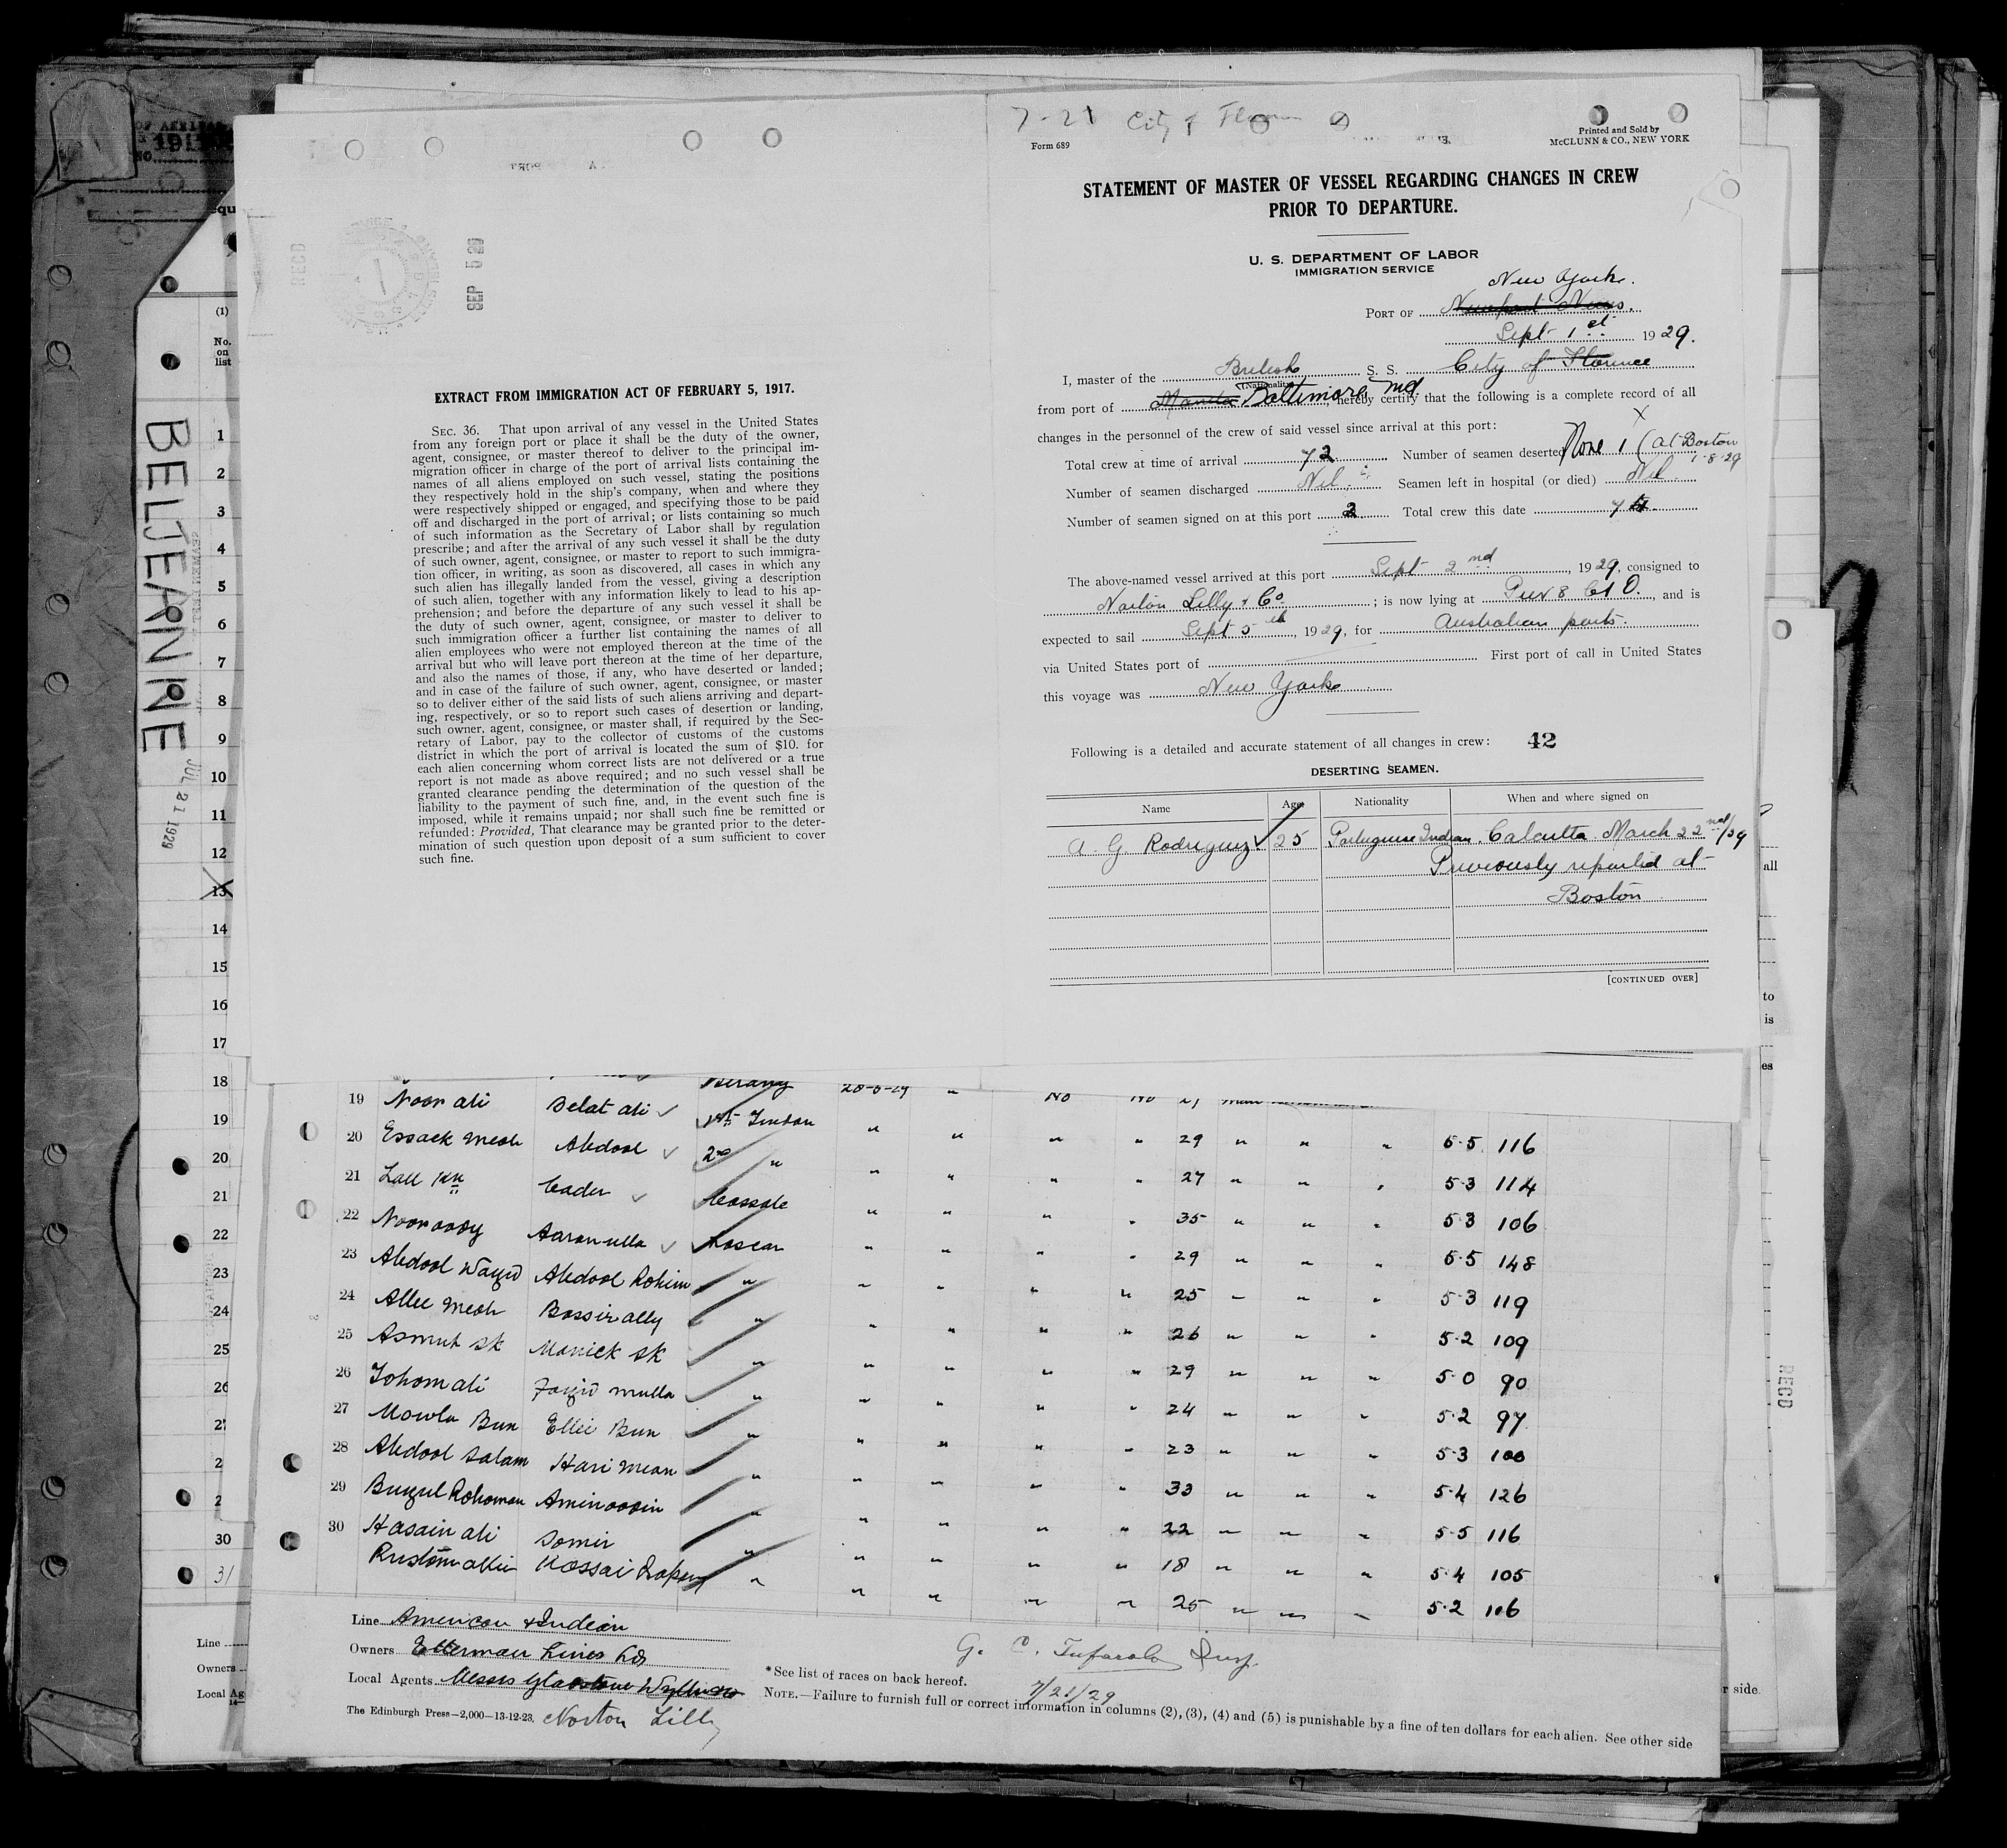 7-21 City of Florence
Form 689
Printed and Sold by
McCLUNN & CO., NEW YORK
STATEMENT OF MASTER OF VESSEL REGARDING CHANGES IN CREW
PRIOR TO DEPARTURE.
U. S. DEPARTMENT OF LABOR
IMMIGRATION SERVICE
New York.
PORT OF Newport News.
Sept 1st 1929.
I, master of the British S. S. City of Florence
(Nationality)
from port of Manila Baltimore Md, hereby certify that the following is a complete record of all
changes in the personnel of the crew of said vessel since arrival at this port:
Total crew at time of arrival 72 Number of seamen deserted None 1 (at Boston
1-8-29
Number of seamen discharged Nil. Seamen left in hospital (or died) Nil
Number of seamen signed on at this port 2 Total crew this date 74
The above-named vessel arrived at this port Sept 2nd, 1929, consigned to
Norton Lilly & Co; is now lying at Pier 8 Ct O., and is
expected to sail Sept 5th, 1929, for Australian ports.
via United States port of First port of call in United States
this voyage was New York
Following is a detailed and accurate statement of all changes in crew: 42
DESERTING SEAMEN.
Name Age Nationality When and where signed on
A. G. Rodriguez 25 Portuguese Indian. Calcutta. March 22nd/29
Previously reported at
Boston
[CONTINUED OVER]
RECD
SEP 5 29
EXTRACT FROM IMMIGRATION ACT OF FEBRUARY 5, 1917.
SEC. 36. That upon arrival of any vessel in the United States
from any foreign port or place it shall be the duty of the owner,
agent, consignee, or master thereof to deliver to the principal im-
migration officer in charge of the port of arrival lists containing the
names of all aliens employed on such vessel, stating the positions
they respectively hold in the ship's company, when and where they
were respectively shipped or engaged, and specifying those to be paid
off and discharged in the port of arrival; or lists containing so much
of such information as the Secretary of Labor shall by regulation
prescribe; and after the arrival of any such vessel it shall be the duty
of such owner, agent, consignee, or master to report to such immigra-
tion officer, in writing, as soon as discovered, all cases in which any
such alien has illegally landed from the vessel, giving a description
of such alien, together with any information likely to lead to his ap-
prehension; and before the departure of any such vessel it shall be
the duty of such owner, agent, consignee, or master to deliver to
such immigration officer a further list containing the names of all
alien employees who were not employed thereon at the time of the
arrival but who will leave port thereon at the time of her departure,
and also the names of those, if any, who have deserted or landed;
and in case of the failure of such owner, agent, consignee, or master
so to deliver either of the said lists of such aliens arriving and depart-
ing, respectively, or so to report such cases of desertion or landing,
such owner, agent, consignee, or master shall, if required by the Sec-
retary of Labor, pay to the collector of customs of the customs
district in which the port of arrival is located the sum of $10. for
each alien concerning whom correct lists are not delivered or a true
report is not made as above required; and no such vessel shall be
granted clearance pending the determination of the question of the
liability to the payment of such fine, and, in the event such fine is
imposed, while it remains unpaid; nor shall such fine be remitted or
refunded: Provided, That clearance may be granted prior to the deter-
mination of such question upon deposit of a sum sufficient to cover
such fine.
BELJEANNE
JUL 21 1929
(1)
No.
on
list
1
2
3
4
5
6
7
8
9
10
11
12
13
14
15
16
17
18
19
20
21
22
23
24
25
26
30
31
Line
Owners
Local Ag
all
to
is
es
RECD
r side.
19 Noor ali Belat ali 1st Tindal " " " " 29 " " " 5·5 116
20 Essack meah Abdool 2nd " " " " " 27 " " " 5·3 114
21 Lall Kn Cader Cassab " " " " 35 " " " 5·3 106
22 Nooroody Aaron ulla Lascar " " " " 29 " " " 5·5 148
23 Abdool Wazid Abdool Rohim " " " " " 25 " " " 5·3 119
24 Allee meah Bassir ally " " " " " 26 " " " 5·2 109
25 Asmut Sk Manick Sk " " " " " 29 " " " 5·0 90
26 Tohom ali Fazid mulla " " " " " 24 " " " 5·2 97
27 Mowla Bux Ellie Bux " " " " " 23 " " " 5·3 100
28 Abdool Salam Hari mean " " " " " 33 " " " 5·4 126
29 Buzul Rohoman Aminoodin " " " " " 22 " " " 5·5 116
30 Hasain ali Somir " " " " " 18 " " " 5·4 105
Rustom allie Kossai " " " " " 25 " " " 5·2 106
Line American & Indian
Owners Ellerman Lines Ld
Local Agents Messrs Gladstone Wyllie & Co
The Edinburgh Press—2,000—13-12-23. Norton Lilly
Insp.
*See list of races on back hereof.
7/21/29
NOTE.—Failure to furnish full or correct information in columns (2), (3), (4) and (5) is punishable by a fine of ten dollars for each alien. See other side